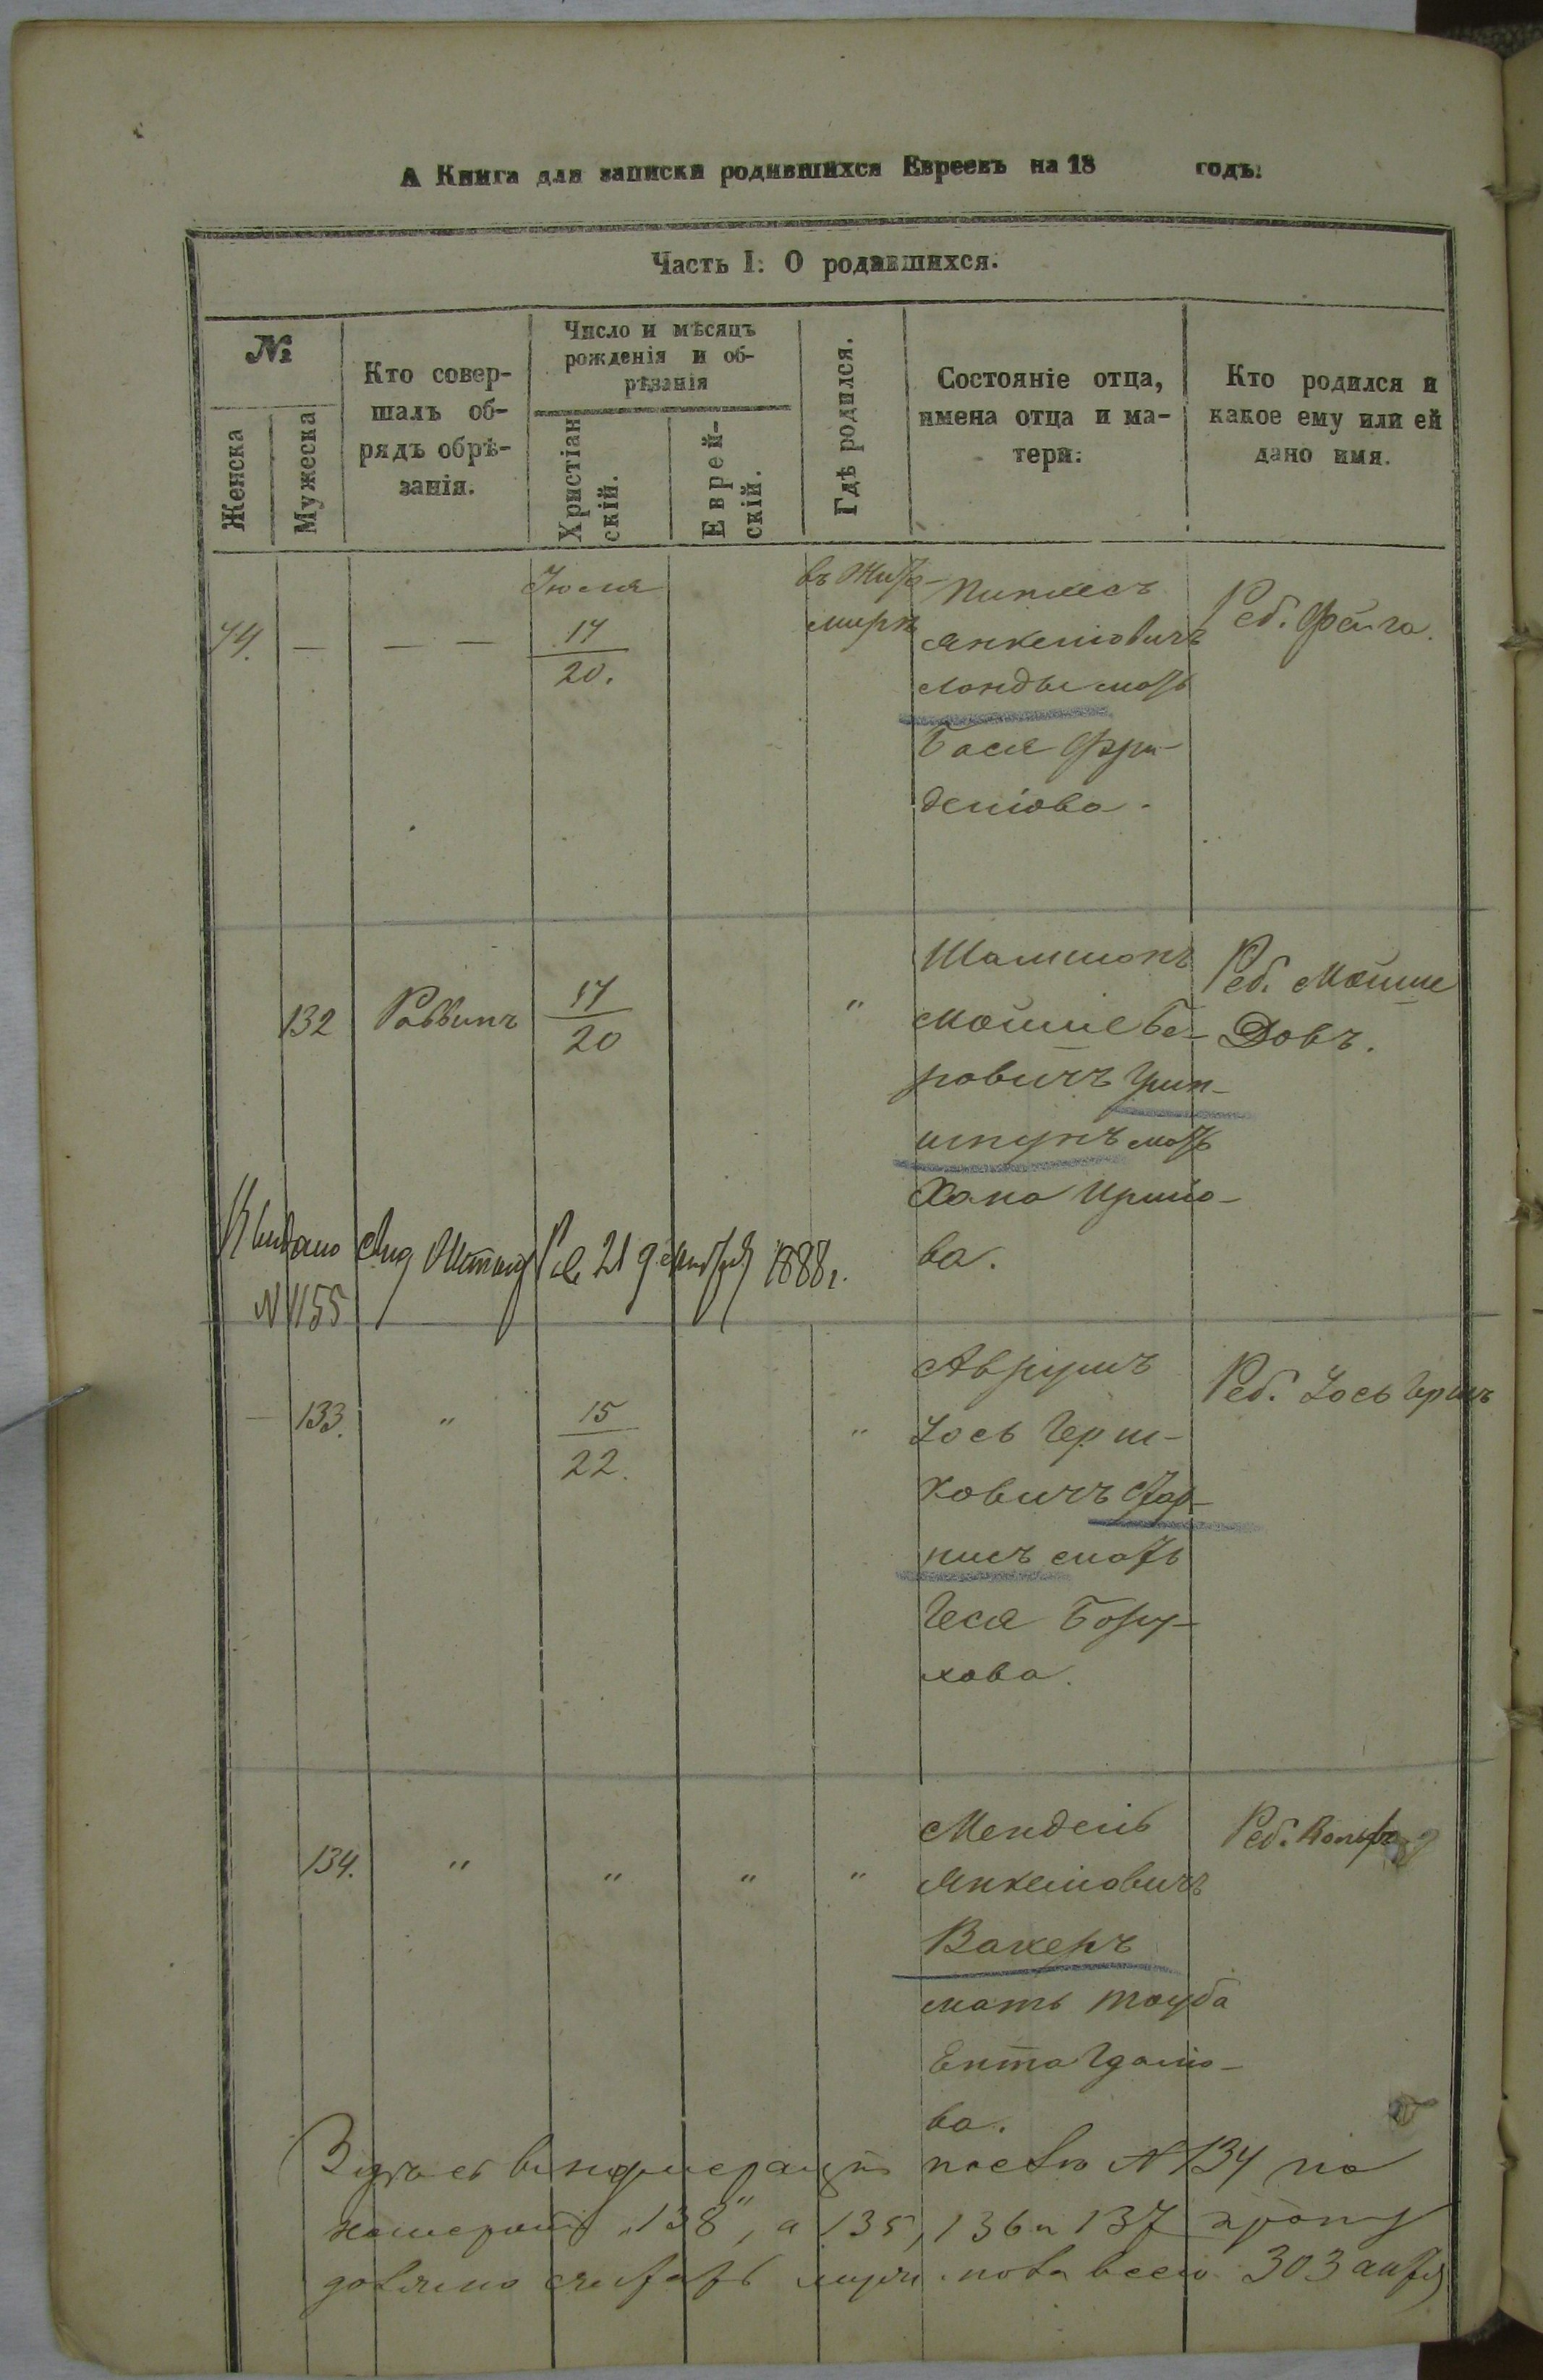 А Книга для записки родившихся Евреевъ на 18 годъ:
Часть I: О родившихся.
№
Женска
Мужеска
Кто совер-
шалъ об-
рядъ обрѣ-
занія.
Число и мѣсяцъ
рожденія и об-
рѣзанія
Христіан
скій.
Еврей-
скій.
Гдѣ родился.
Состояніе отца,
имена отца и ма-
тери:
Кто родился и
какое ему или ей
дано имя.
74. — — —
Іюля
17
20.
въ Жито-
мирѣ
Пинкесъ
Янкелевичъ
Ланды мать
Бася Фри-
делова.
Реб. Фейга.
132
Раввинъ
17
20
"
Мойше Бе-
ровичъ Грин-
шпунъ мать
Хана Иршо-
ва.
Реб. Мойше
Довъ.
21 декабря 1888 г.
№ 1155
— 133. "
15
22.
"
Аврумъ
Іось Герш-
ковичъ
мать
Геся Бору-
хова.
Реб. Іось Гершъ
134. " " " "
Мендель
Янкелевичъ
Вакеръ
мать Тауба
Ента
ва.
Реб. Вольфъ
Здѣсь въ нумераціи послѣ № 134 по
"138", а 135, 136 и 137
303